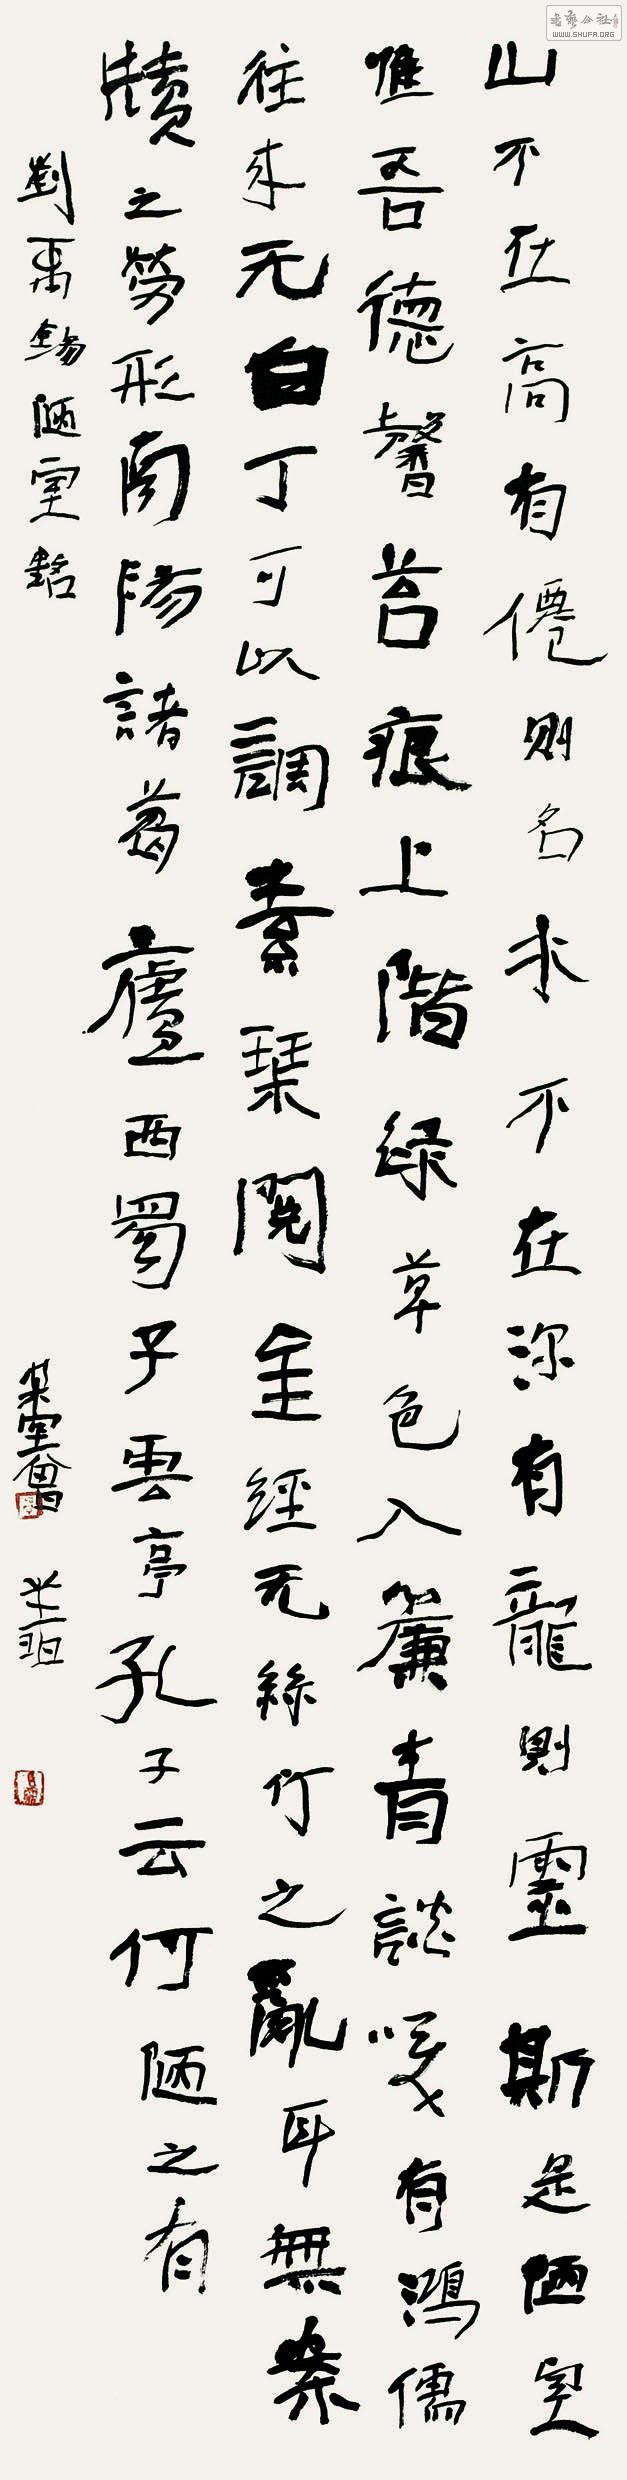 山不在高有僊則名水不在深有龍則靈斯是陋室
唯吾德馨苔痕上階緑草色入簾青談咲有鴻儒
往来无白丁可以調素琴閱金經无絲竹之亂耳無案
牘之勞形南陽諸葛廬西蜀子雲亭孔子云何陋之有
劉禹錫陋室銘
WWW.SHUFA.ORG